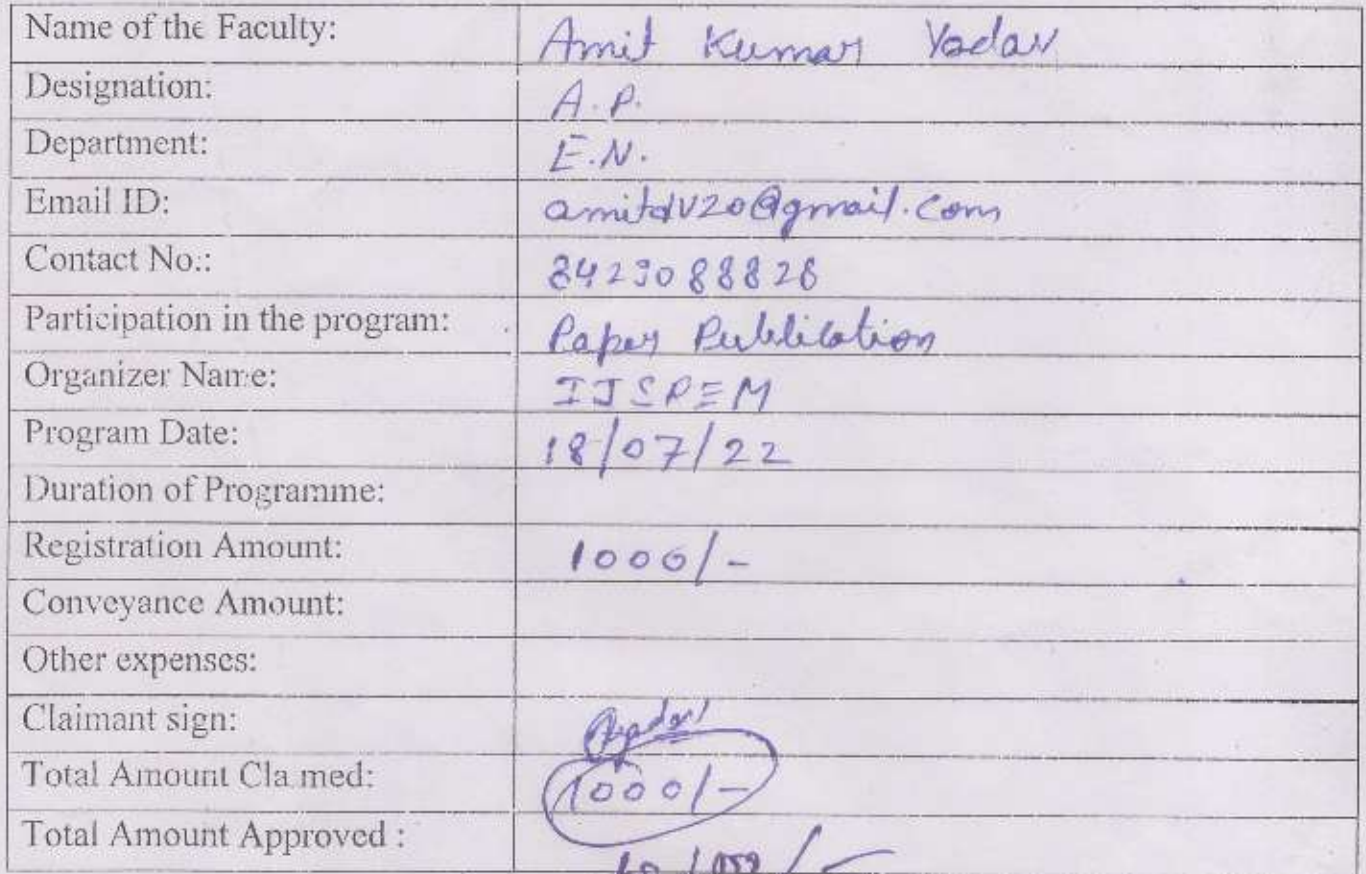 Name of the Faculty: Amit Kumar Yadav
Designation: A.P.
Department: E.N.
Email ID: amitdv20@gmail.com
Contact No.:
Participation in the program: Paper Publication
Organizer Name:
Program Date: 18/07/22
Duration of Programme:
Registration Amount: 1000/-
Conveyance Amount:
Other expenses:
Claimant sign:
Total Amount Claimed: 1000/-
Total Amount Approved :